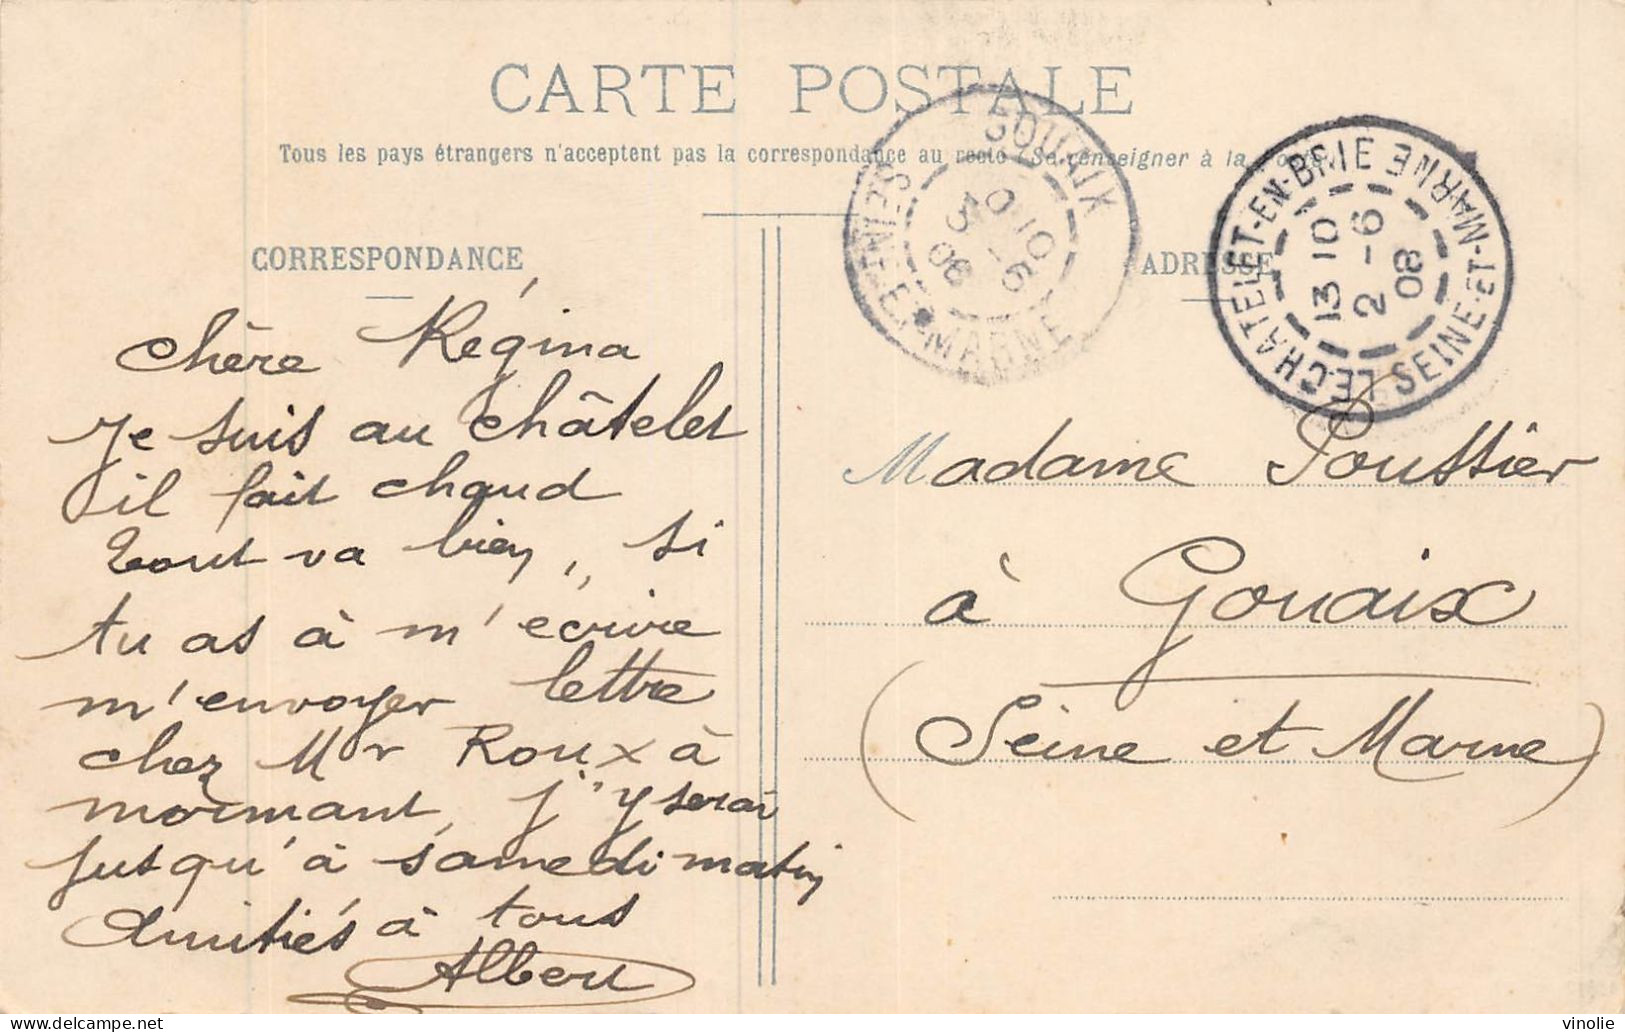 CARTE POSTALE
Tous les pays étrangers n'acceptent pas la correspondance au recto (Se renseigner à la
CORRESPONDANCE
ADRESSE
GOUAIX
SEINE-ET-MARNE
9 10
3 - 6
08
LE CHATELET-EN-BRIE
SEINE-ET-MARNE
13 10
2 - 6
08
chère Régina
Je suis au châtelet
il fait chaud
tout va bien, si
tu as à m'écrire
m'envoyer lettre
chez Mr Roux à
mormant, j'y serai
jusqu'à samedi matin
Amitiés à tous
Albert
Madame Poussier
à Gouaix
(Seine et Marne)
vinolie